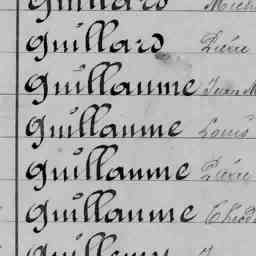 Guillard
Guillard Pierre
Guillaume Jean M
Guillaume Louis
Guillaume Pierre
Guillaume Théod